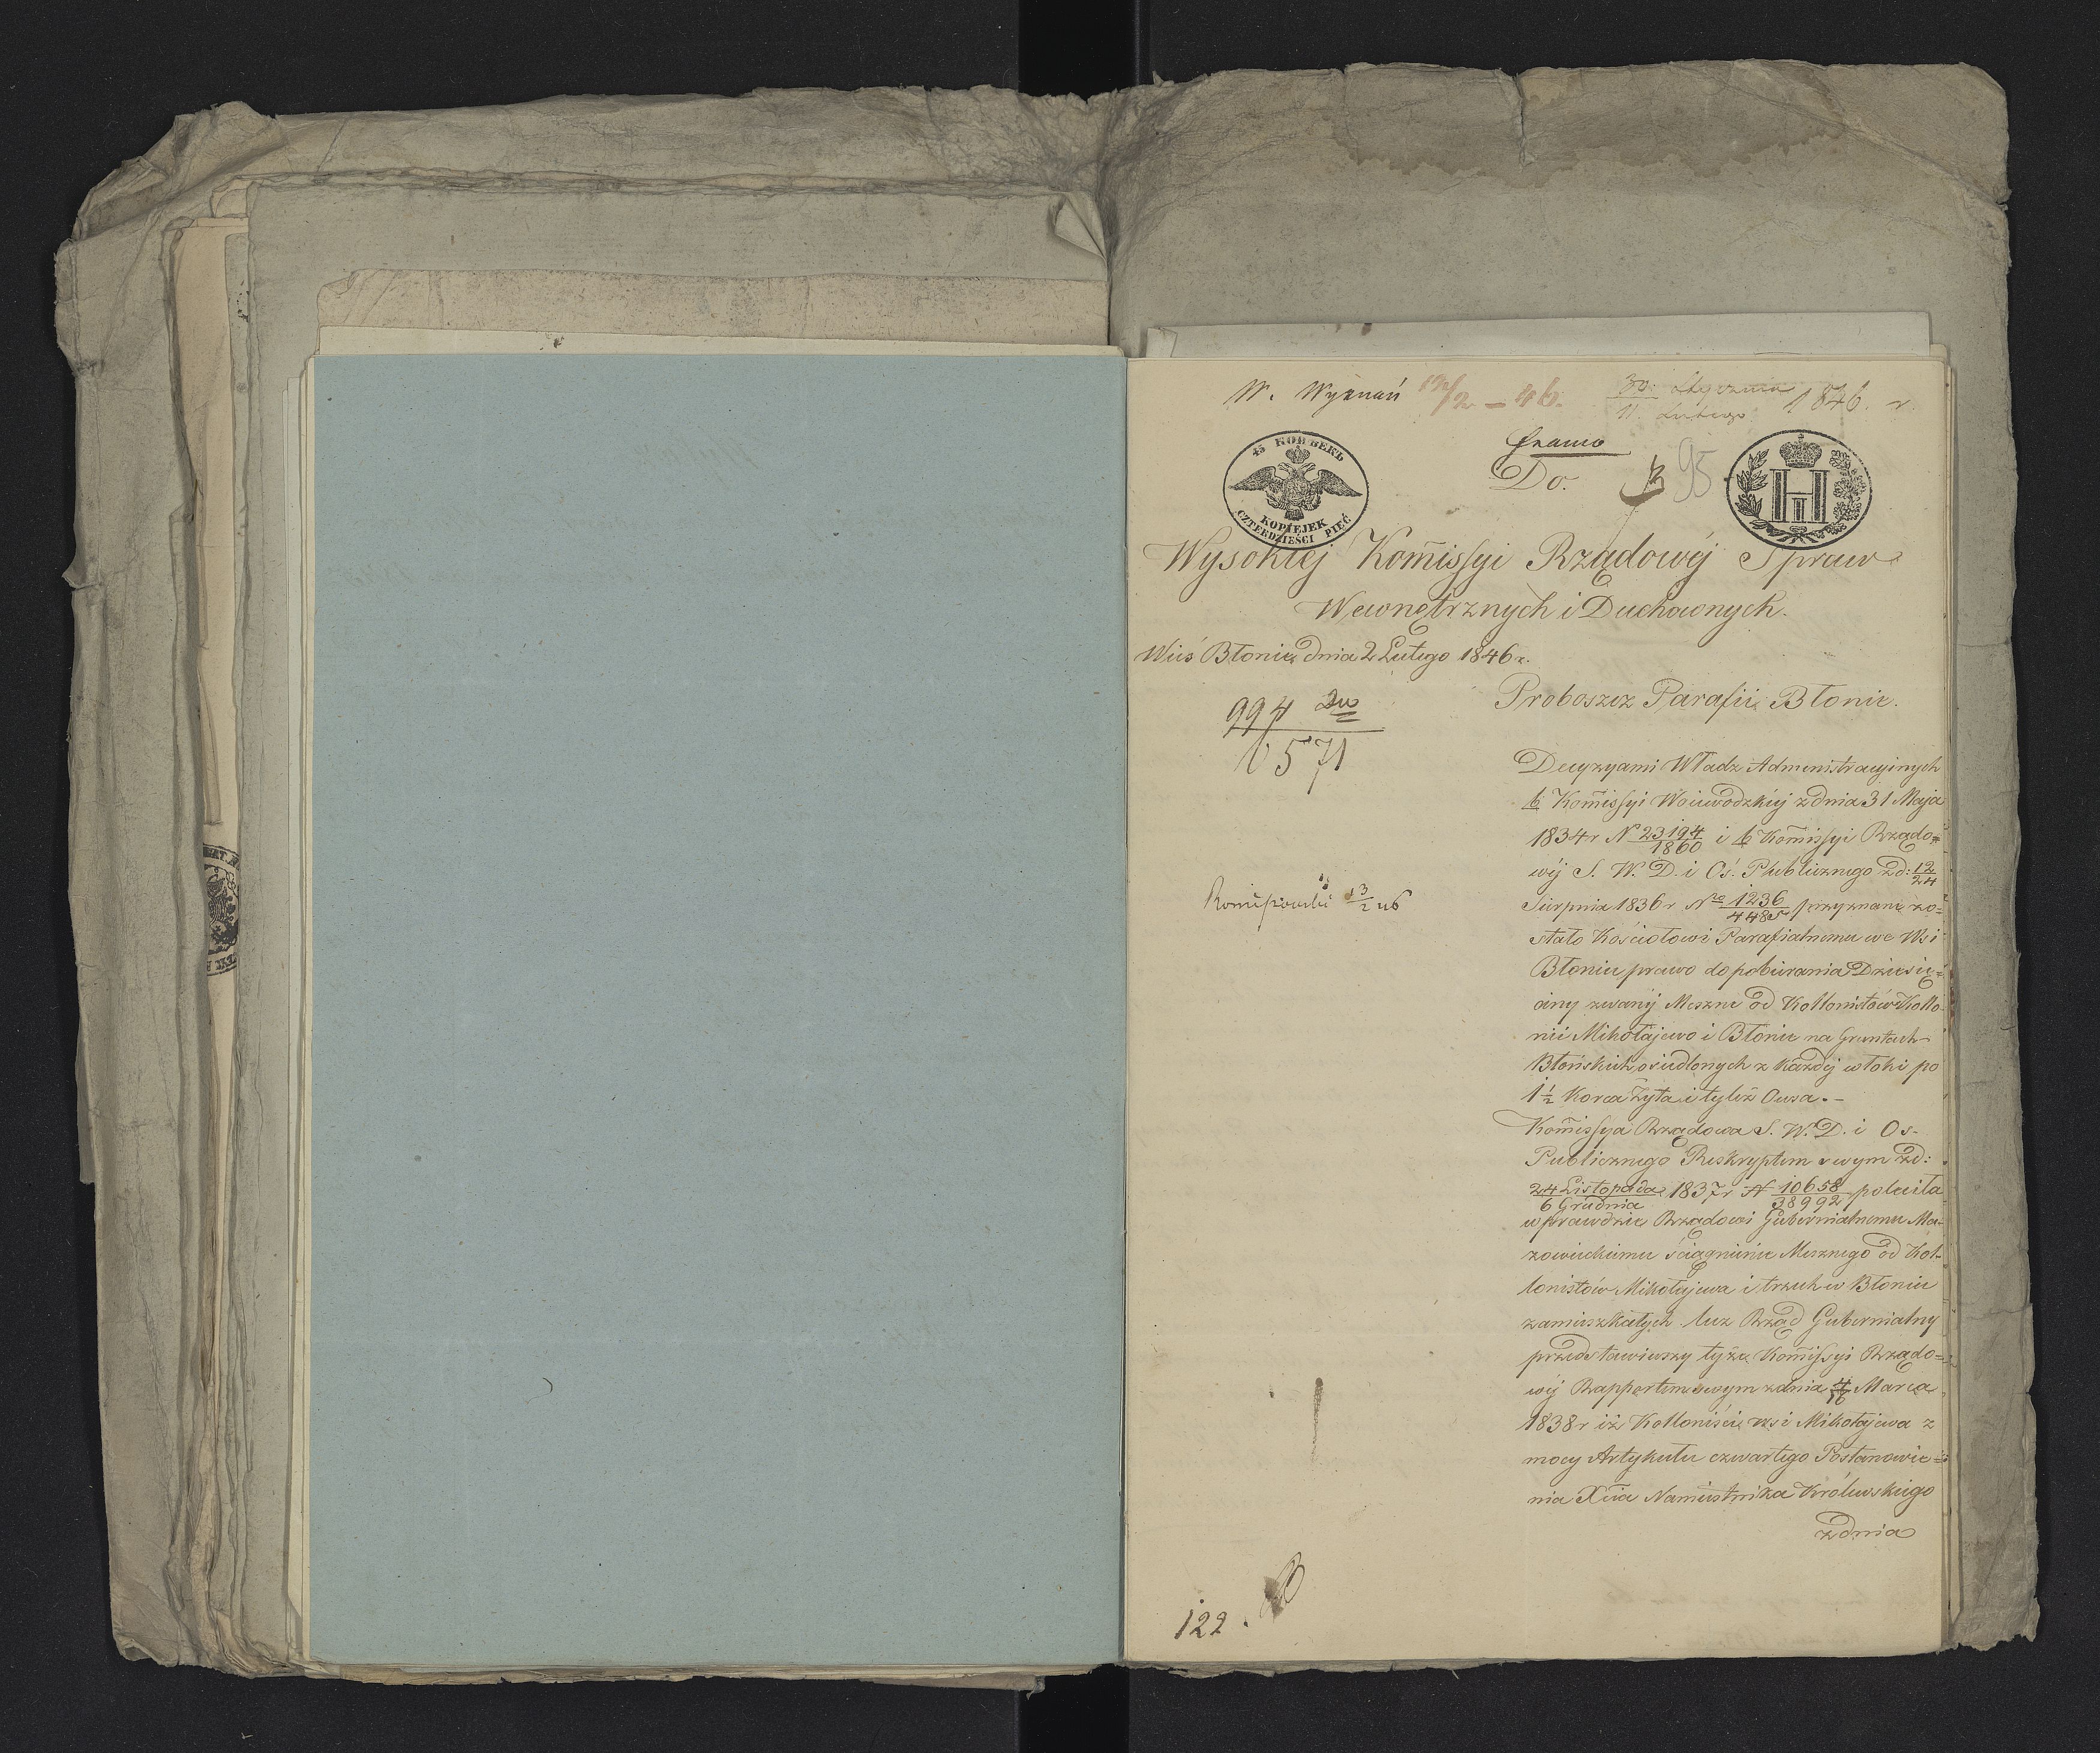 W. Wyznań 12/2 - 46. 30 Stycznia / 11. Lutego 1846. r.
45 КОПѢЕКЪ
KOPIEJEK
CZTERDZIEŚCI PIĘĆ
Do. 95
Wysokiej Kom̄issyi Rządowéj Spraw
Wewnętrznych i Duchownych.
Wieś Błonie dnia 2 Lutego 1846 r.
994
6571
Proboszcz Parafii Błonie.
Decyzyami Władz Administracyinych
b Kom̄issyi Woiewodzkiej z dnia 31 Maja
1834 r N 23194/1860 i b Kom̄issyi Rządo=
wéj S. W. D. i Oś. Publicznego z d: 12/24
Sierpnia 1836 r Nro 1236/4485 przyznane zo=
stało Kościołowi Parafialnemu we Wsi
Błoniu prawo do pobierania Dziesię=
ciny zwanéj Meszne od Kollonistów Kollo-
nii Mikołajewo i Błonie na Gruntach
Błońskich osiedlonych z każdéj włoki po
1 1/2 Korca Żyta i tyleż Owsa. -
Kom̄issya Rządowa S. W. D. i Os-
Publicznego Reskryptem swym z d:
24 Listopada / 6 Grudnia 1837 r N 10658/38992 poleciła
wprawdzie Rządowi Gubernialnemu Ma-
zowieckiemu ściągnienie Mesznego od Kol-
lonistów Mikołajewa i trzech w Błoniu
zamieszkałych. lecz Rząd Gubernialny
przedstawiwszy tejże Kom̄issyi Rządo=
wéj Rapportem swym z dnia 4/16 Marca
1838 r iż Kolloniści wsi Mikołajewa z
mocy Artykułu czwartego Postanowie=
nia Xcia Namiestnika Królewskiego
z dnia
122.